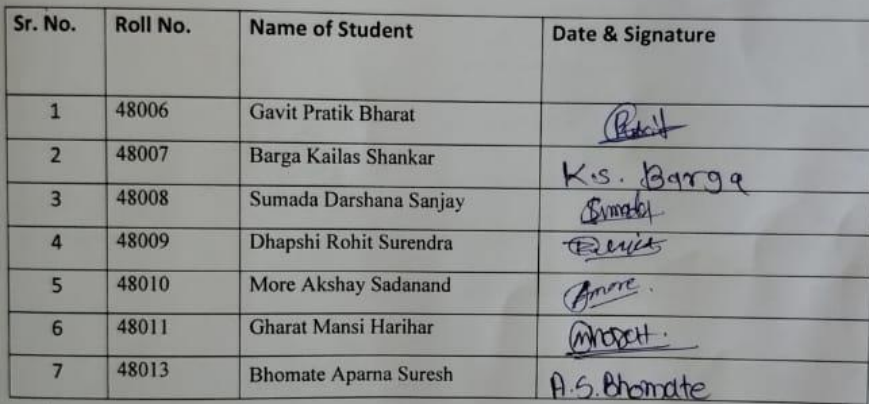 Sr. No. Roll No. Name of Student Date & Signature
1 48006 Gavit Pratik Bharat
2 48007 Barga Kailas Shankar K.S. Barga
3 48008 Sumada Darshana Sanjay
4 48009 Dhapshi Rohit Surendra
5 48010 More Akshay Sadanand Amore.
6 48011 Gharat Mansi Harihar
7 48013 Bhomate Aparna Suresh A.S.Bhomate